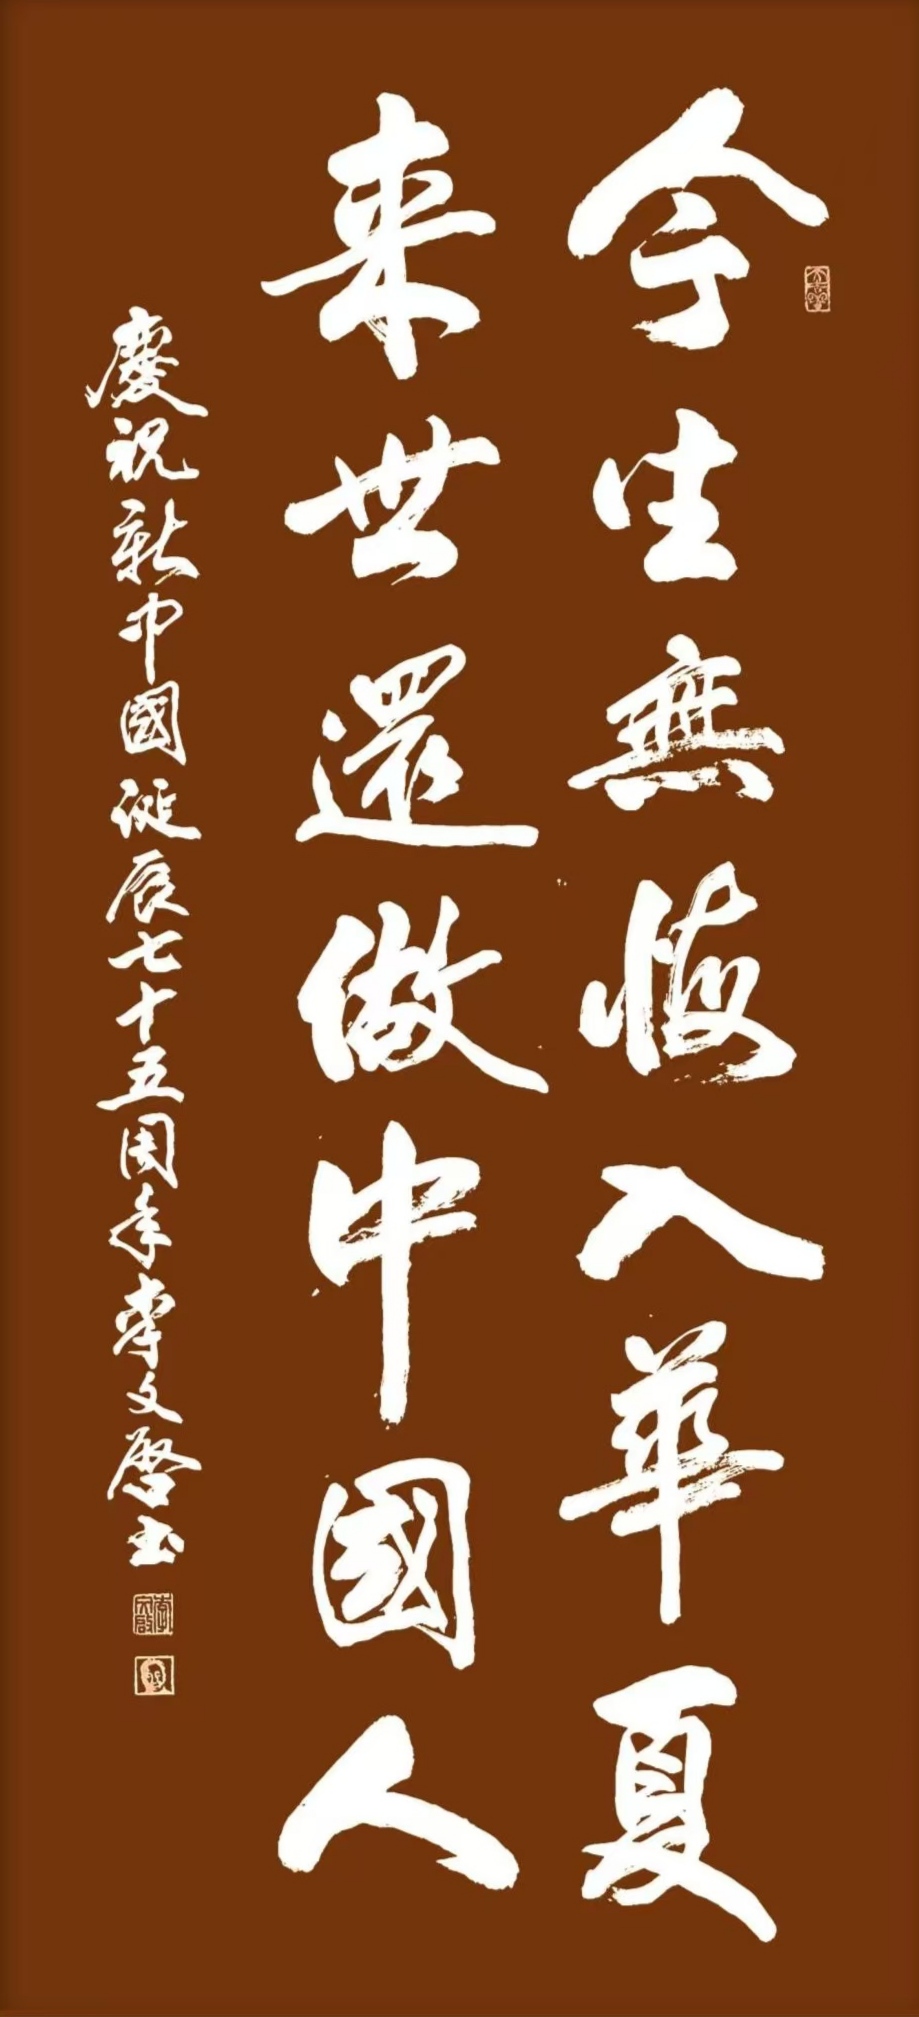 今生無悔入華夏
来世還做中國人
慶祝新中國誕辰七十五周年李文啓书
李文啟